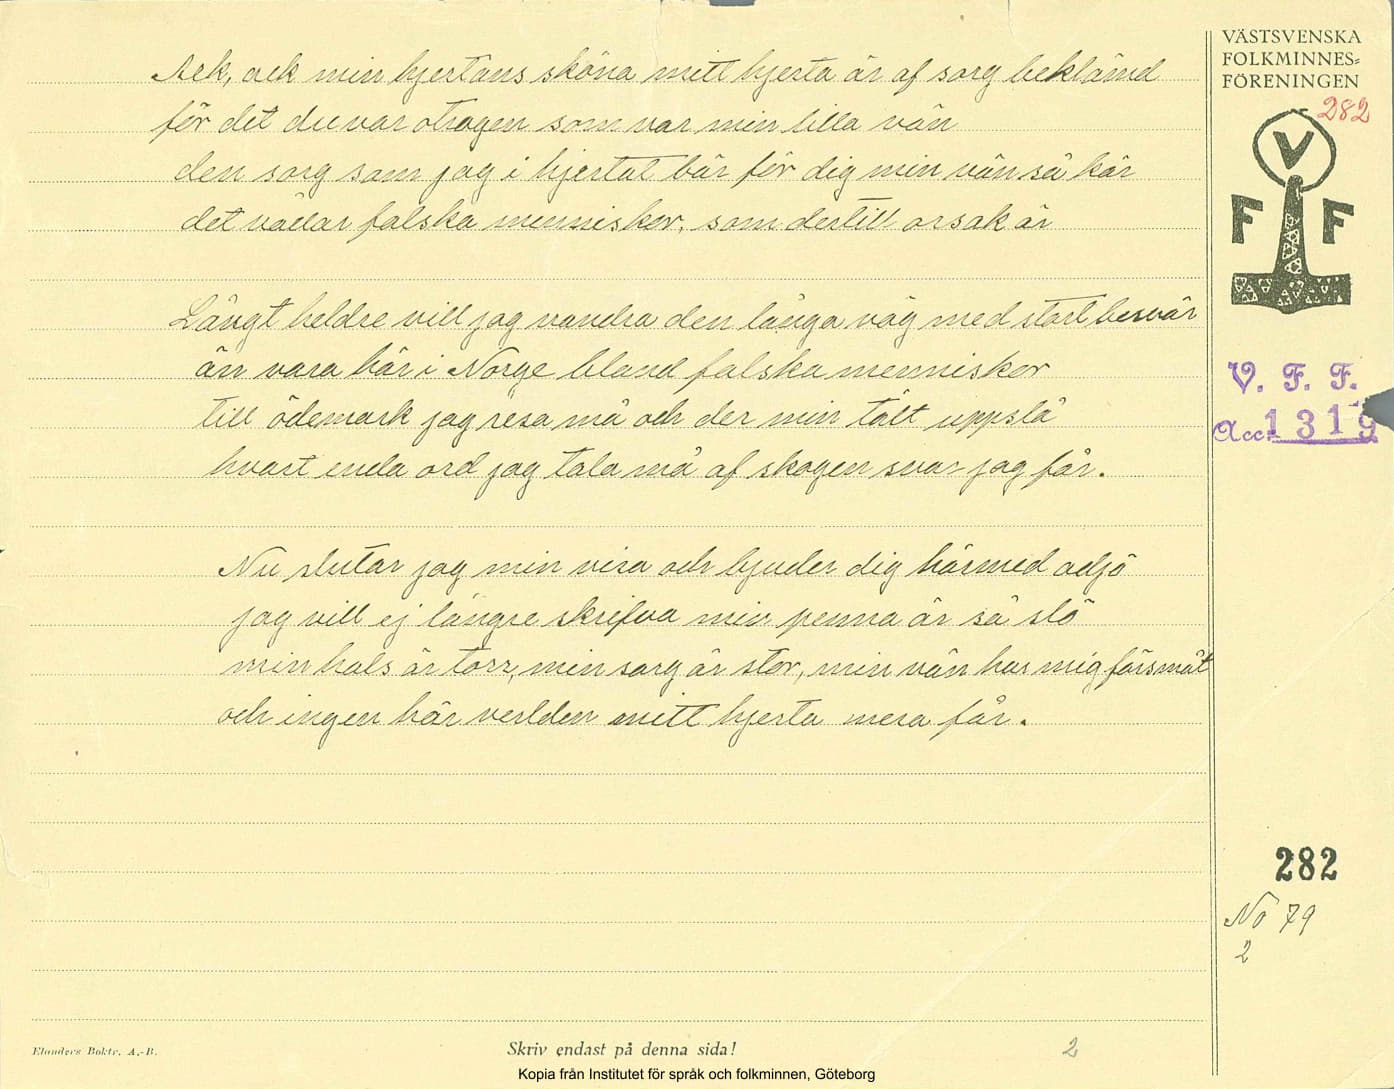 Ack, ack min hjertans sköna mitt hjerta är af sorg beklämd
för det du var otrogen som var min lilla vän
den sorg som jag i hjertat bär för dig min vän så kär
det vållar falska menniskor, som dertill orsak är
Långt heldre vill jag vandra den långa väg med stort besvär
än vara här i Norge bland falska menniskor
till ödemark jag resa må och der min tält uppslå
hvart enda ord jag tala må af skogen svar jag får.
Nu slutar jag min visa och bjuder dig härmed adjö
jag vill ej längre skrifva min penna är så slö
min hals är torr, min sorg är stor, min vän har mig försmåt
och ingen här verlden mitt hjerta mera får.
VÄSTSVENSKA
FOLKMINNES=
FÖRENINGEN
282
V
F F
V. F. F.
Acc. 1319
282
No 79
2
Elanders Boktr. A.-B.
Skriv endast på denna sida!
2
Kopia från Institutet för språk och folkminnen, Göteborg